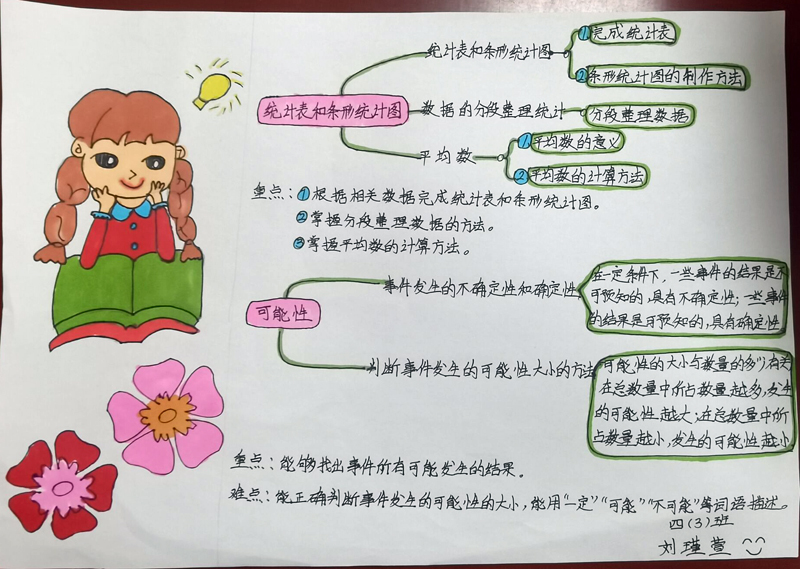 统计表和条形统计图
统计表和条形统计图
①完成统计表
②条形统计图的制作方法
数据的分段整理统计
分段整理数据
平均数
①平均数的意义
②平均数的计算方法
重点：①根据相关数据完成统计表和条形统计图。
②掌握分段整理数据的方法。
③掌握平均数的计算方法。
可能性
事件发生的不确定性和确定性
在一定条件下，一些事件的结果是不
可预知的，具有不确定性；一些事件
的结果是可预知的，具有确定性
判断事件发生的可能性大小的方法
可能性的大小与数量的多少有关
在总数量中所占数量越多，发生
的可能性越大；在总数量中所
占数量越小，发生的可能性越小
重点：能够找出事件所有可能发生的结果。
难点：能正确判断事件发生的可能性的大小，能用“一定”“可能”“不可能”等词语描述。
四(3)班
刘瑾萱